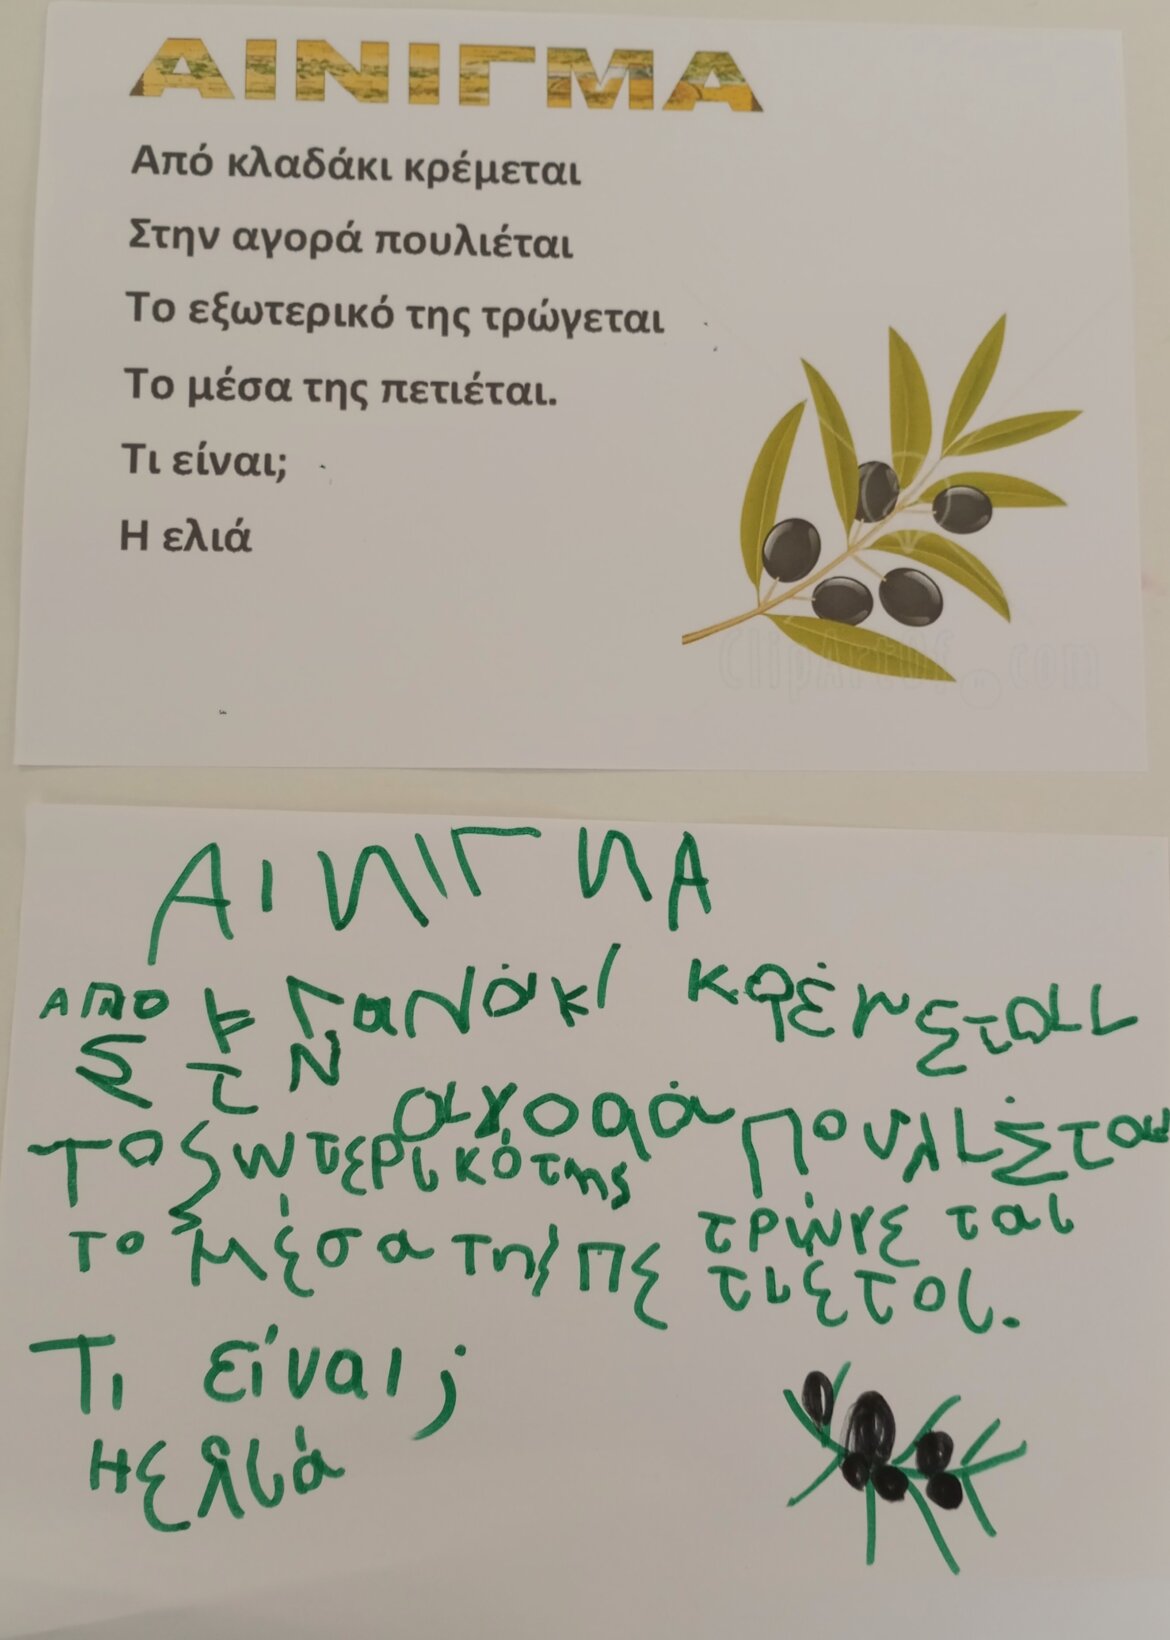 ΑΙΝΙΓΜΑ
Από κλαδάκι κρέμεται
Στην αγορά πουλιέται
Το εξωτερικό της τρώγεται
Το μέσα της πετιέται.
Τι είναι;
Η ελιά
ClipArtOf.com
ΑΙΝΙΓΜΑ
ΑΠΟ κρέμεται
αγορά πουλιέται
Το ξωτερικό της
τρώγεται
το μέσα της πε
τιέται.
Τι είναι;
Η ελιά